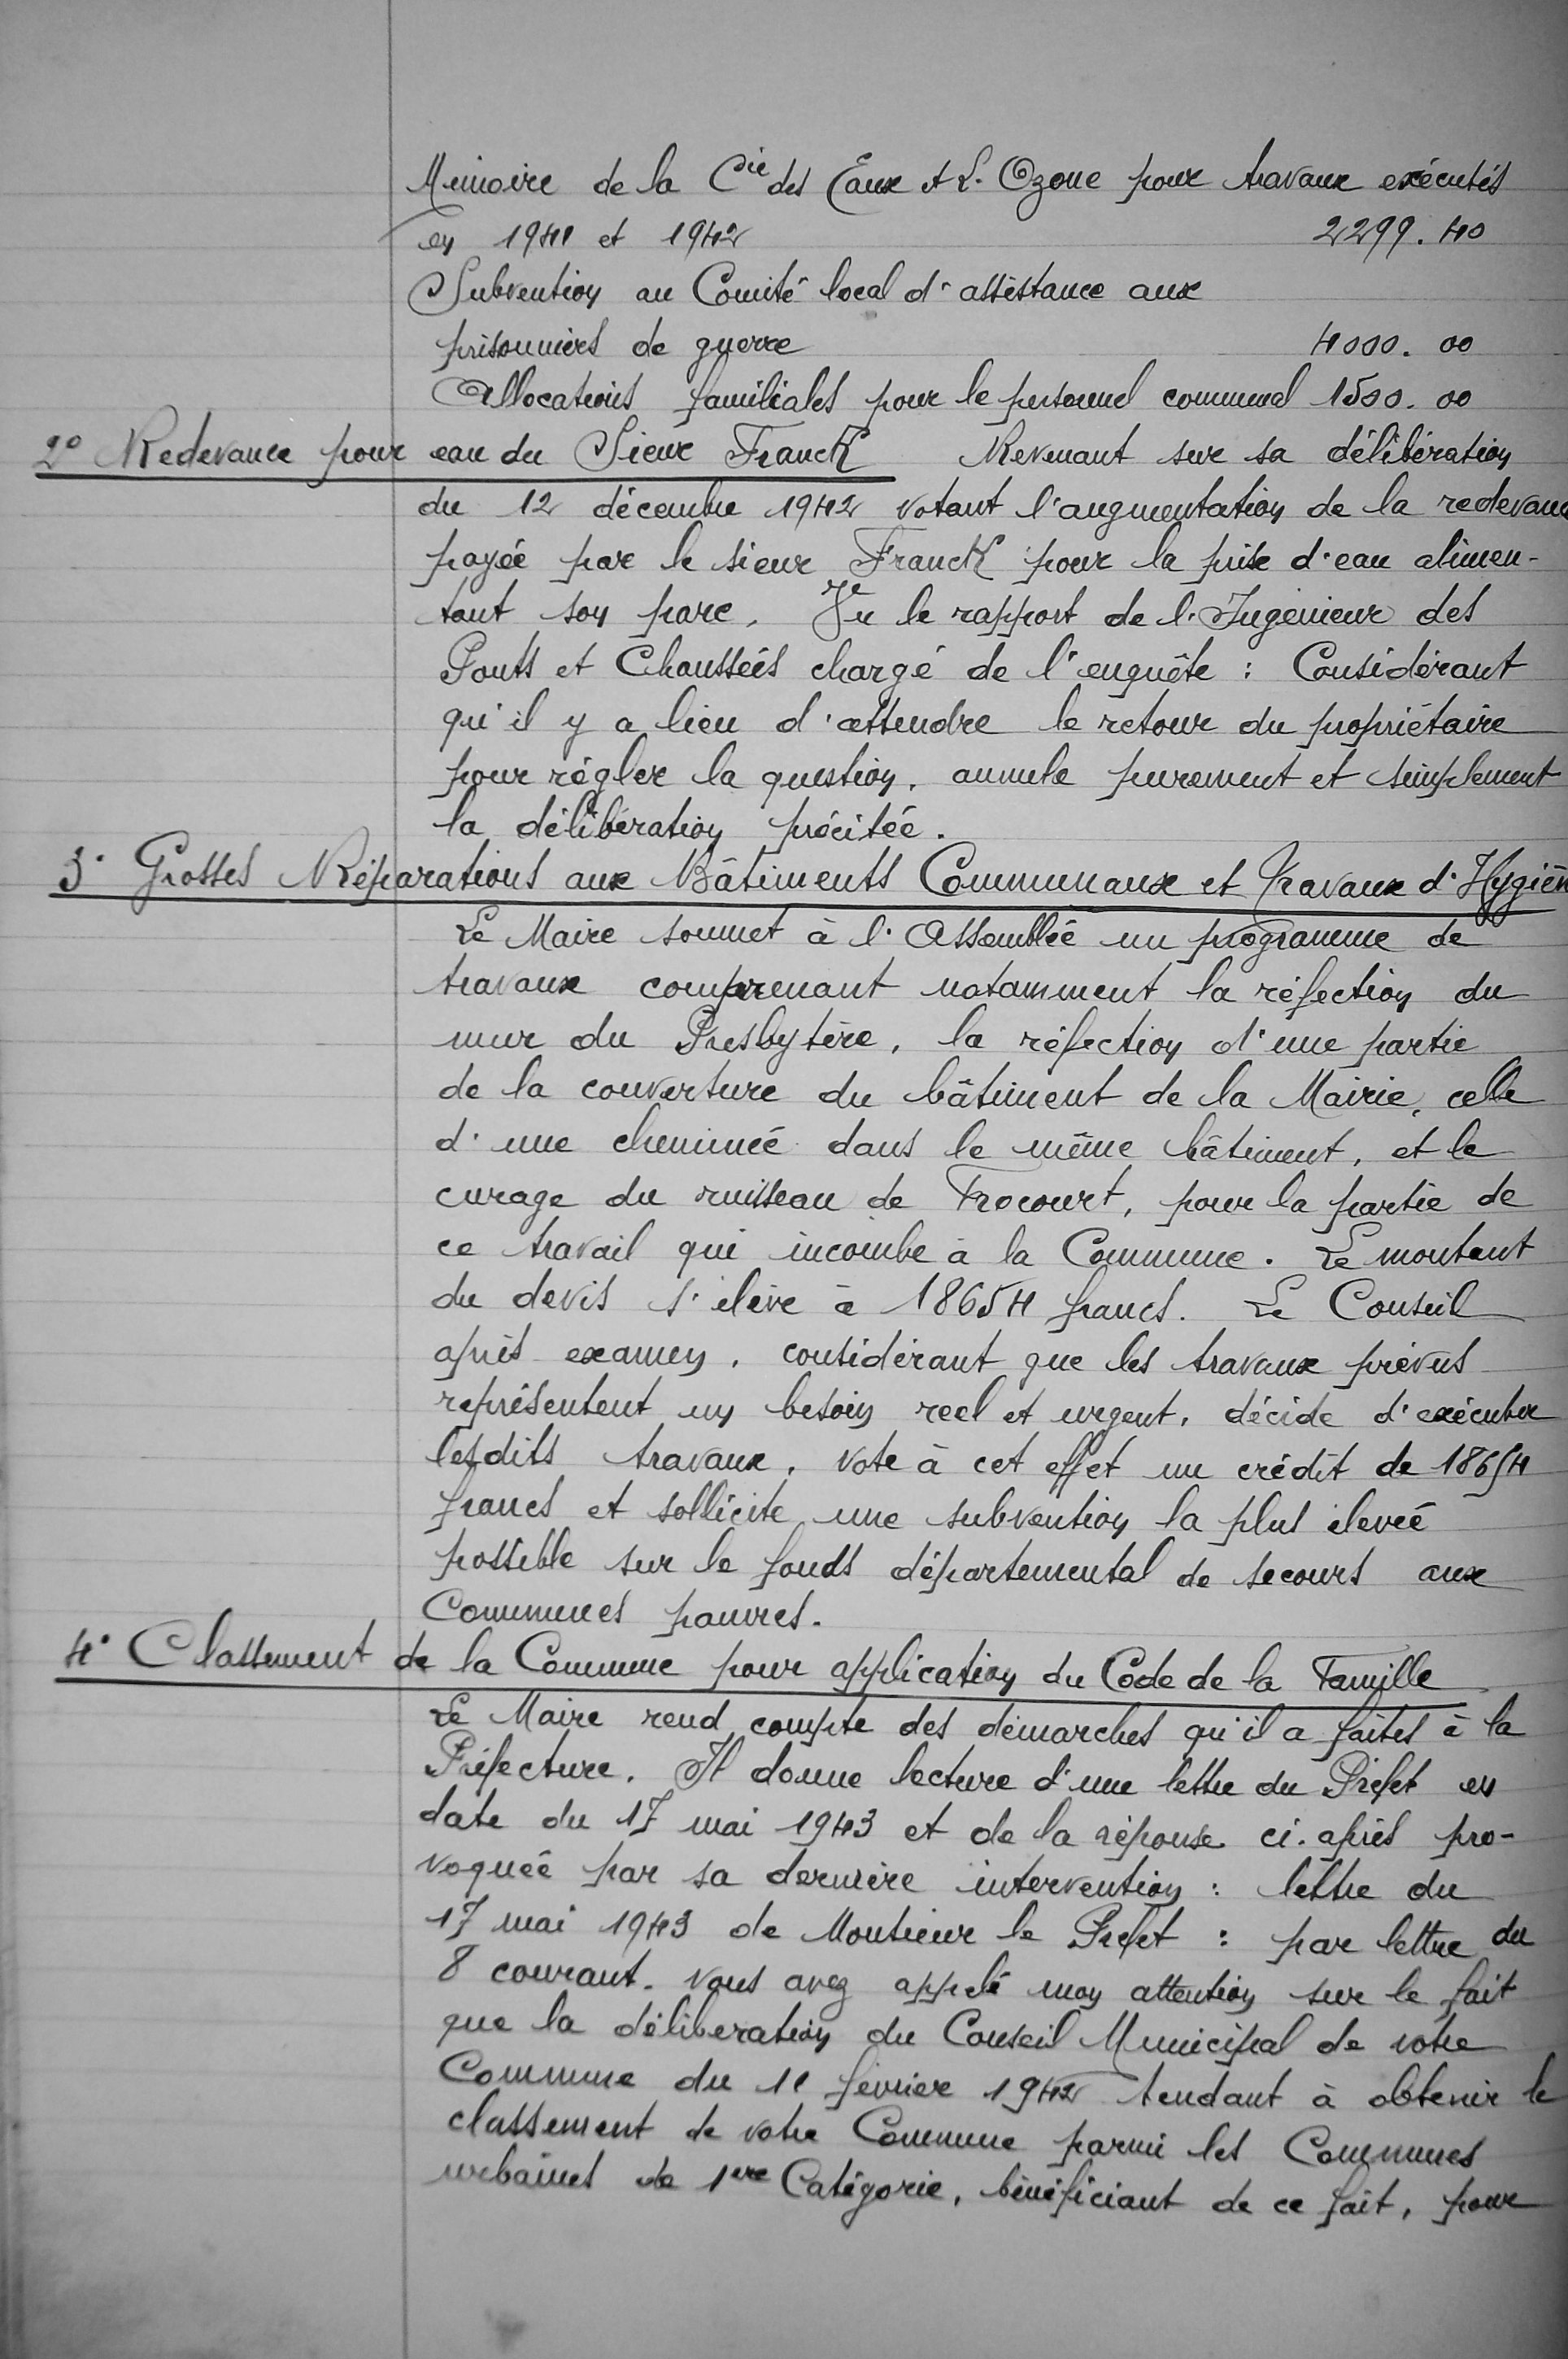 Mémoire de la Cie des Eaux et L. Ozone pour travaux exécutés
en 1941 et 1942 2299.40
Subvention au Comité local d'assistance aux
prisonniers de guerre 4000.00
Allocations familiales pour le personnel communal 1500.00
2° Redevance pour eau du Sieur Franck Revenant sur sa délibération
du 12 décembre 1942 votant l'augmentation de la redevance
payée par le sieur Franck pour la prise d'eau alimen-
tant son parc. Vu le rapport de l'Ingénieur des
Ponts et Chaussées chargé de l'enquête : Considérant
qu'il y a lieu d'attendre le retour du propriétaire
pour régler la question, annule purement et simplement
la délibération précitée.
3° Grosses Réparations aux Bâtiments Communaux et Travaux d'Hygiène
Le Maire soumet à l'Assemblée un programme de
travaux comprenant notamment la réfection du
mur du Presbytère, la réfection d'une partie
de la couverture du bâtiment de la Mairie, celle
d'une cheminée dans le même bâtiment, et le
curage du ruisseau de Frocourt, pour la partie de
ce travail qui incombe à la Commune. Le montant
du devis s'élève à 18654 francs. Le Conseil
après examen, considérant que les travaux prévus
représentent un besoin reel et urgent, décide d'exécuter
lesdits travaux, vote à cet effet un crédit de 18654
francs et sollicite une subvention la plus élevée
possible sur le fonds départemental de secours aux
Communes pauvres.
4° Classement de la Commune pour application du Code de la Famille
Le Maire rend compte des démarches qu'il a faites à la
Préfecture. Il donne lecture d'une lettre du Préfet en
date du 17 mai 1943 et de la réponse ci-après pro-
voquée par sa dernière intervention : lettre du
17 mai 1943 de Monsieur le Préfet : par lettre du
8 courant. vous avez appelé mon attention sur le fait
que la délibération du Conseil Municipal de votre
Commune du 11 février 1942 tendant à obtenir le
classement de votre Commune parmi les Communes
urbaines de 1ere Catégorie, bénéficiant de ce fait, pour